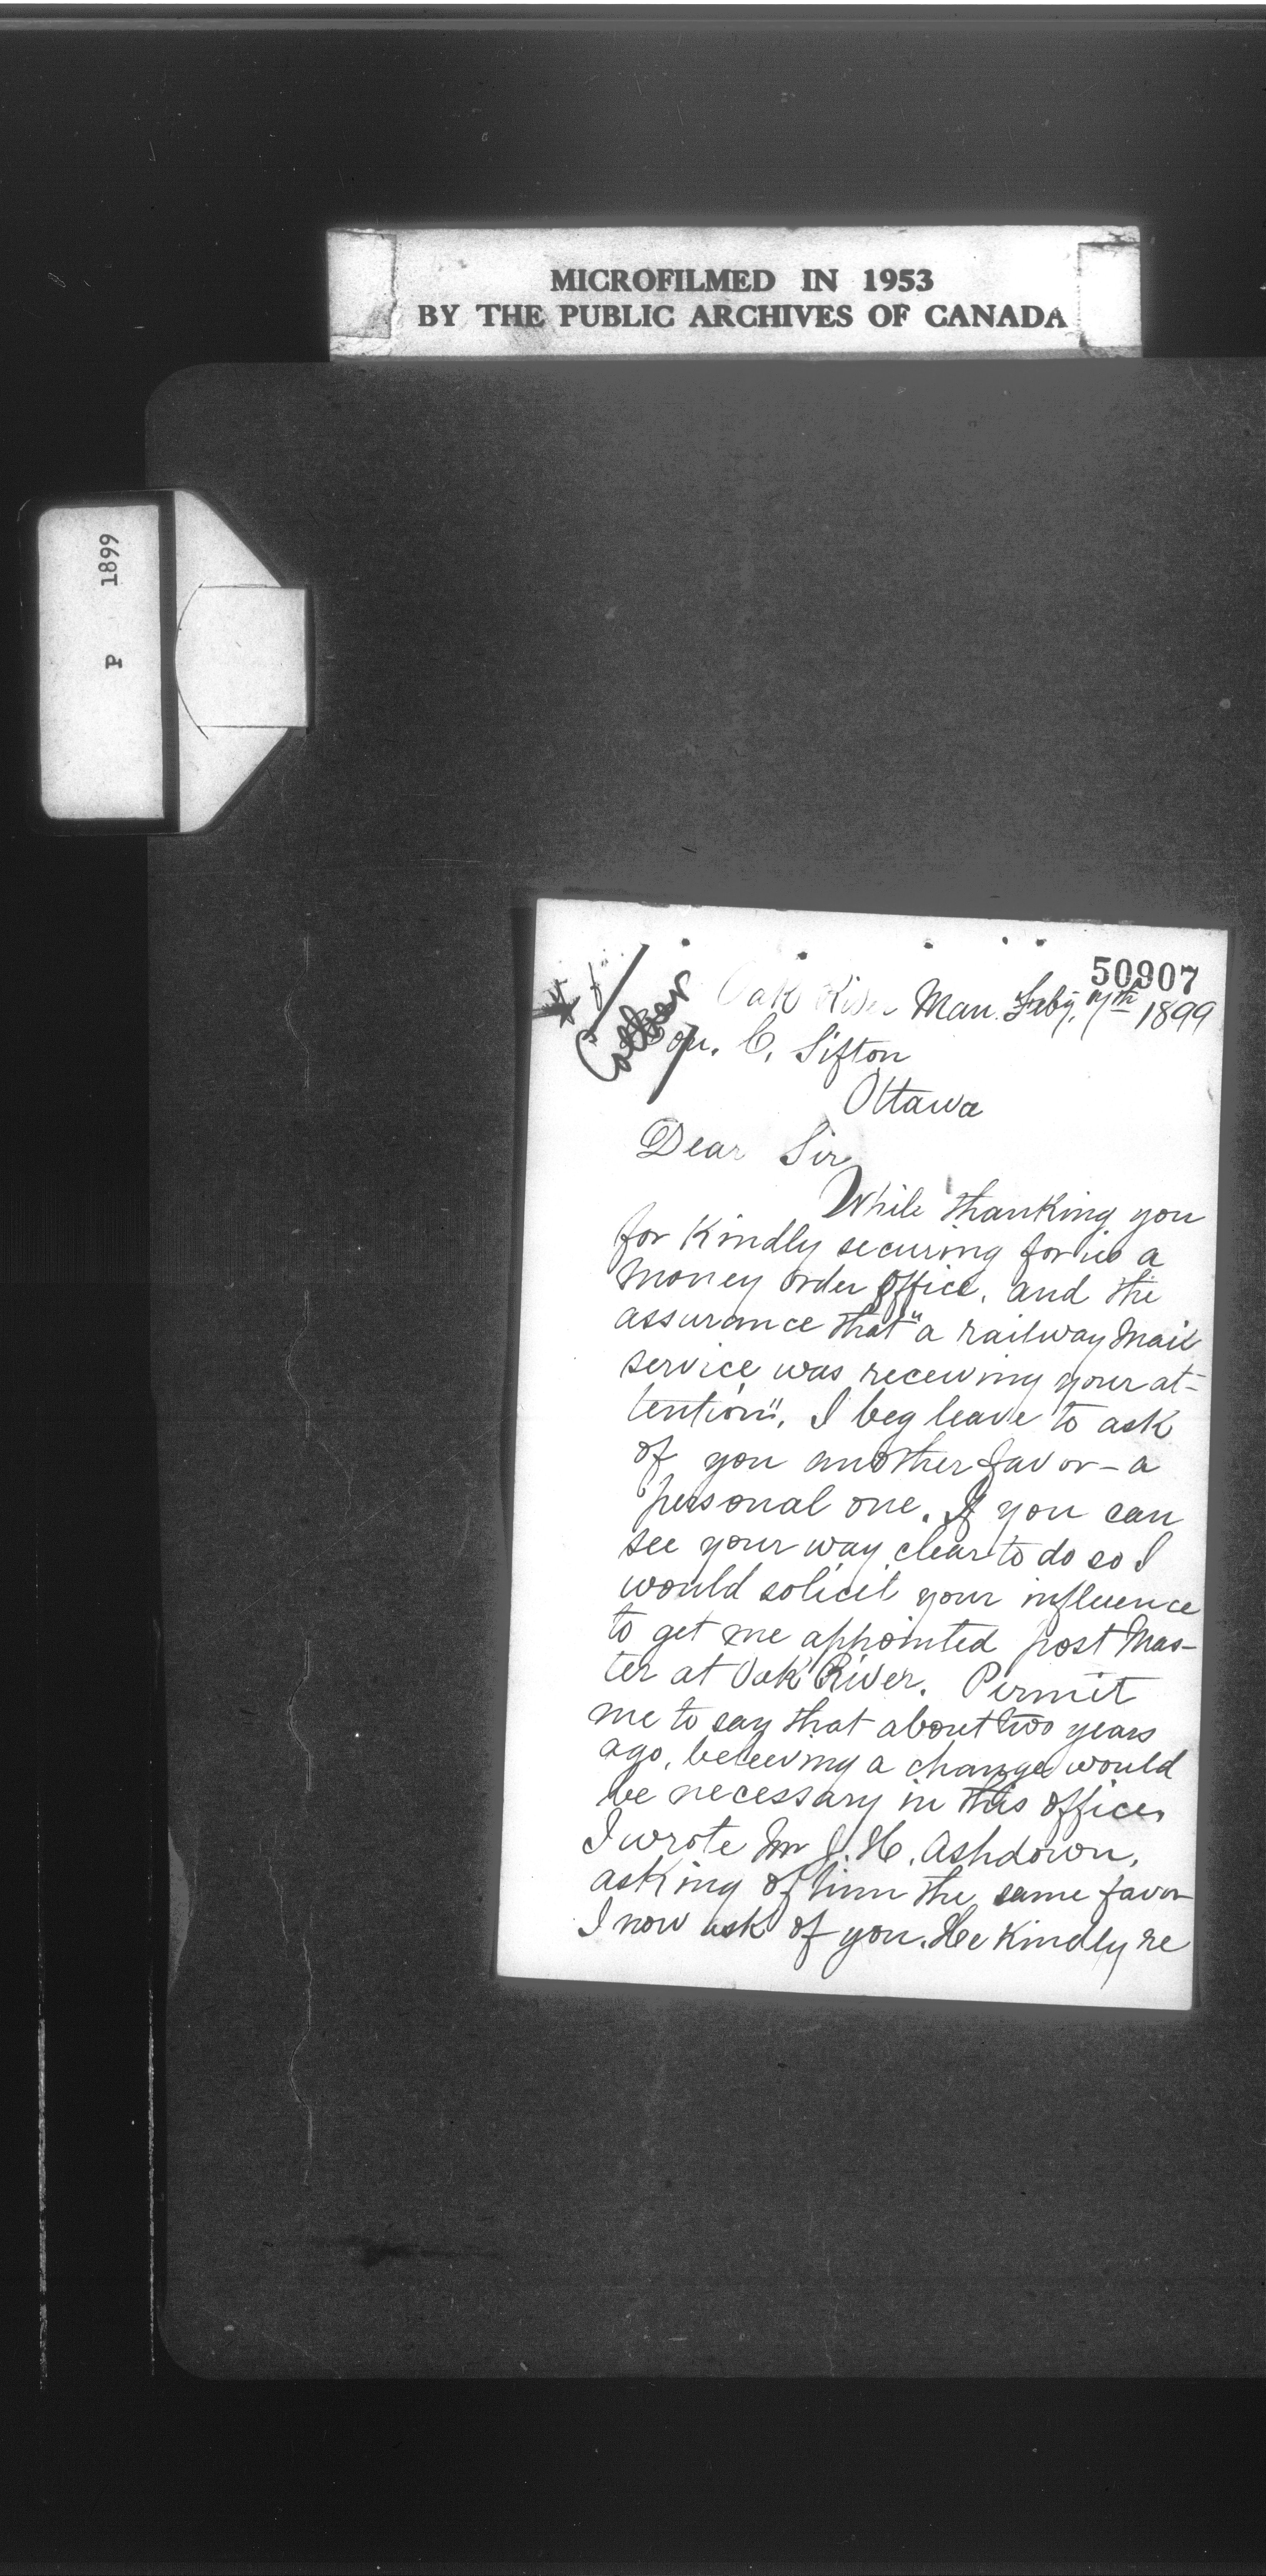 MICROFILMED IN 1953
BY THE PUBLIC ARCHIVES OF CANADA
P 1899
50907
Oak River Man. Feby. 7th 1899
Hon. C. Sifton
Ottawa
Dear Sir
While thanking you
for Kindly securing for us a
money order office, and the
assurance that "a railway mail
service was receiving your at-
tention", I beg leave to ask
of you another favor - a
personal one. If you can
see your way clear to do so I
would solicit your influence
to get me appointed post Mas-
ter at Oak River. Permit
me to say that about two years
ago, beleeving a change would
be necessary in this office,
I wrote Mr J. H. Ashdown,
asking of him the same favor
I now ask of you. He Kindly re